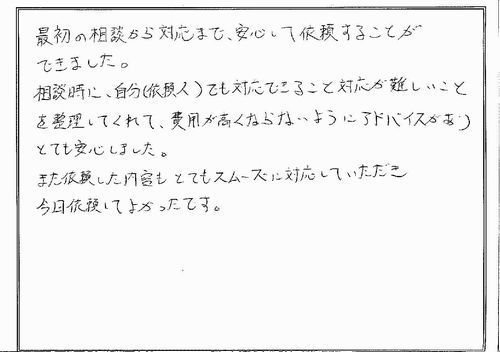 最初の相談から対応まで、安心して依頼することが
できました。
相談時に、自分(依頼人)でも対応できること対応が難しいこと
を整理してくれて、費用が高くならないようにアドバイスがあり
とても安心しました。
また依頼した内容もとてもスムーズに対応していただき
今回依頼してよかったです。